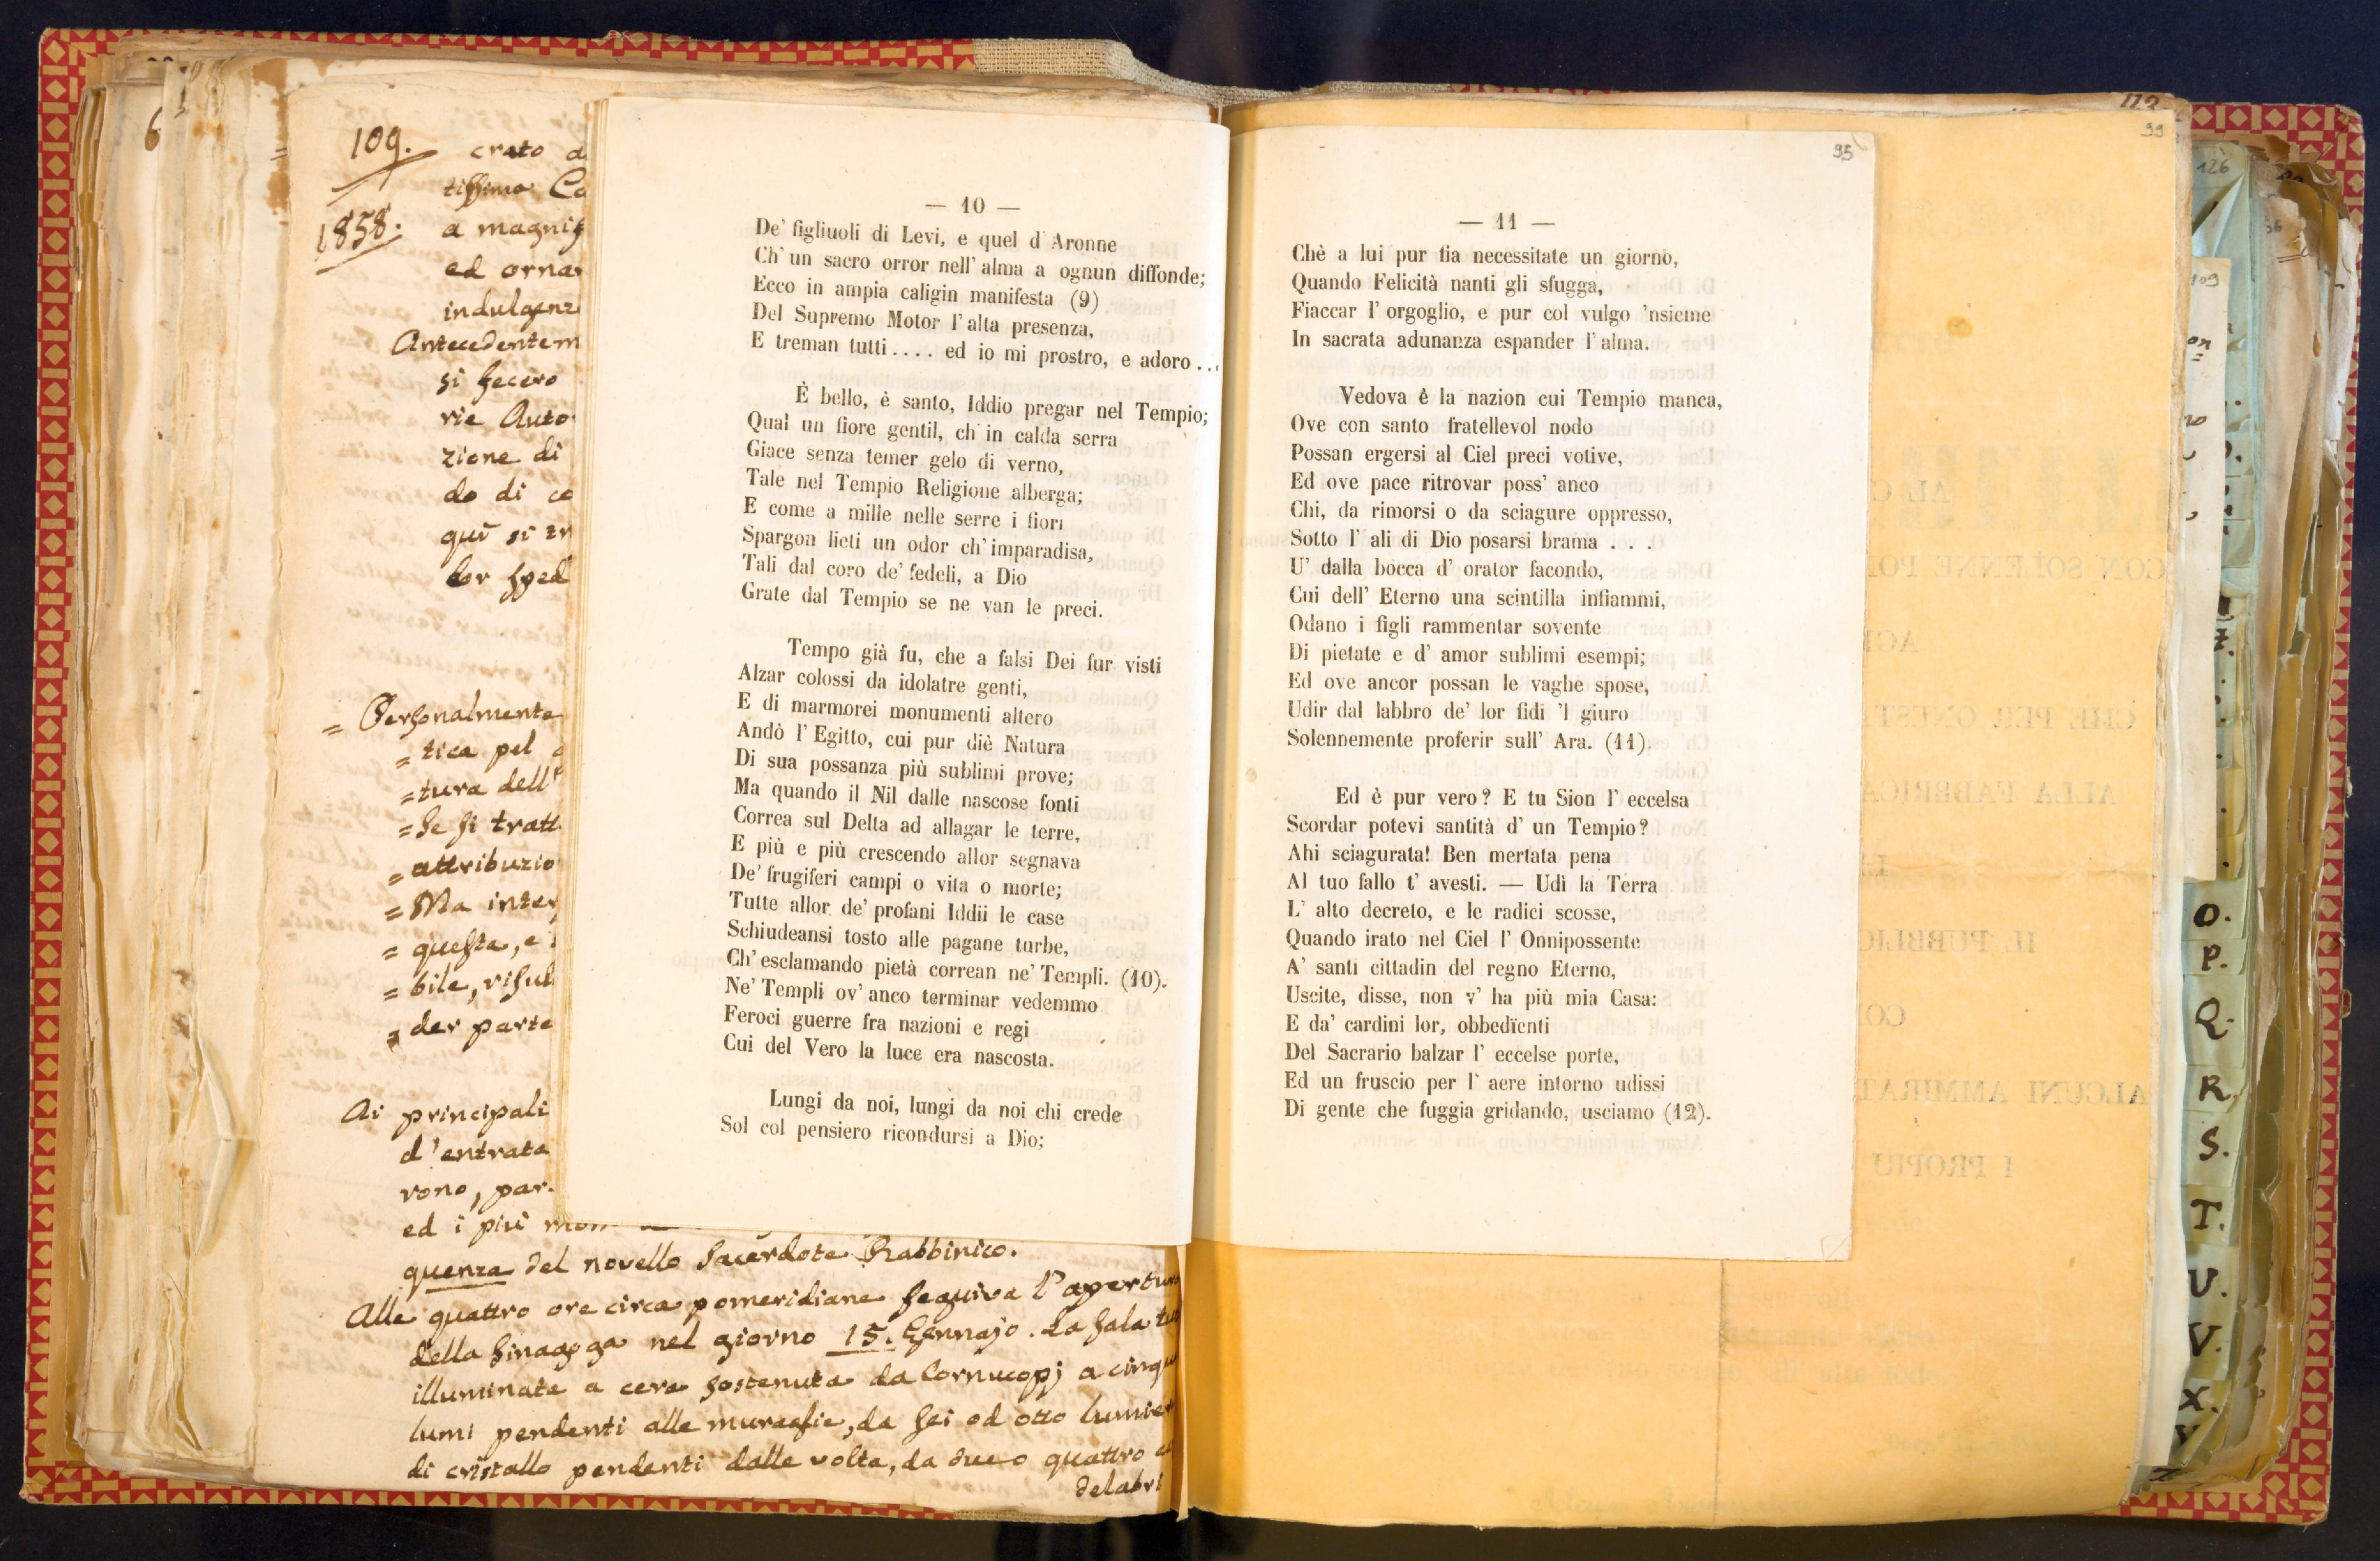 109.
1858.
crato a
tissima Co
a magnif
ed orna
indulgenz
Antecedentem
si fecero
rie Auto
zione di
do di co
qui si
lor sped
= Personalmente
= tica pel
= tura dell'
= se si tratt
= attribuzio
= Ma inter
= questa, e
= bile, risul
= der parte
Ai principali
d'entrata
rono, par
ed i più
quenza del novello Sacerdote Rabbinico.
Alle quattro ore circa pomeridiane seguiva l'apertura
della Sinagoga nel giorno 15. Gennajo. La sala
illuminata a cera sostenuta da Cornucopj a cinque
lumi pendenti alle muraglie, da sei od otto lumier
di cristallo pendenti dalle volta, da due o quattro
delabri
— 10 —
De' figliuoli di Levi, e quel d'Aronne
Ch' un sacro orror nell' alma a ognun diffonde;
Ecco in ampia caligin manifesta (9)
Del Supremo Motor l' alta presenza,
E treman tutti.... ed io mi prostro, e adoro...
È bello, è santo, Iddio pregar nel Tempio;
Qual un fiore gentil, ch' in calda serra
Giace senza temer gelo di verno,
Tale nel Tempio Religione alberga;
E come a mille nelle serre i fiori
Spargon lieti un odor ch' imparadisa,
Tali dal coro de' fedeli, a Dio
Grate dal Tempio se ne van le preci.
Tempo già fu, che a falsi Dei fur visti
Alzar colossi da idolatre genti,
E di marmorei monumenti altero
Andò l' Egitto, cui pur diè Natura
Di sua possanza più sublimi prove;
Ma quando il Nil dalle nascose fonti
Correa sul Delta ad allagar le terre,
E più e più crescendo allor segnava
De' frugiferi campi o vita o morte;
Tutte allor de' profani Iddii le case
Schiudeansi tosto alle pagane turbe,
Ch' esclamando pietà correan ne' Templi. (10).
Ne' Templi ov' anco terminar vedemmo
Feroci guerre fra nazioni e regi
Cui del Vero la luce era nascosta.
Lungi da noi, lungi da noi chi crede
Sol col pensiero ricondursi a Dio;
95
— 11 —
Chè a lui pur fia necessitate un giorno,
Quando Felicità nanti gli sfugga,
Fiaccar l' orgoglio, e pur col vulgo 'nsieme
In sacrata adunanza espander l' alma.
Vedova è la nazion cui Tempio manca,
Ove con santo fratellevol nodo
Possan ergersi al Ciel preci votive,
Ed ove pace ritrovar poss' anco
Chi, da rimorsi o da sciagure oppresso,
Sotto l' ali di Dio posarsi brama . . .
U' dalla bocca d' orator facondo,
Cui dell' Eterno una scintilla infiammi,
Odano i figli rammentar sovente
Di pietate e d' amor sublimi esempi;
Ed ove ancor possan le vaghe spose,
Udir dal labbro de' lor fidi 'l giuro
Solennemente proferir sull' Ara. (11).
Ed è pur vero? E tu Sion l' eccelsa
Scordar potevi santità d' un Tempio?
Ahi sciagurata! Ben mertata pena
Al tuo fallo t' avesti. — Udì la Terra
L' alto decreto, e le radici scosse,
Quando irato nel Ciel l' Onnipossente
A' santi cittadin del regno Eterno,
Uscite, disse, non v' ha più mia Casa:
E da' cardini lor, obbedïenti
Del Sacrario balzar l' eccelse porte,
Ed un fruscio per l' aere intorno udissi
Di gente che fuggia gridando, usciamo (12).
99
126
109
O.
P.
Q.
R.
S.
T.
U.
V.
X.